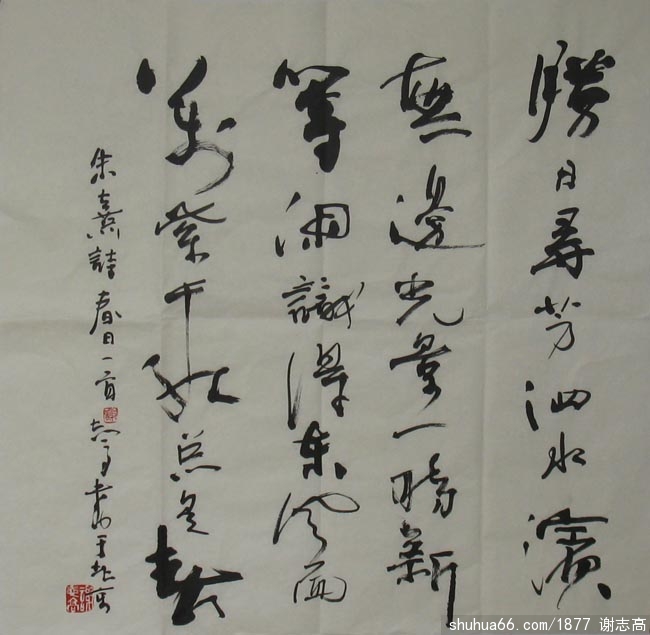 勝日尋芳泗水濱
無邊光景一時新
等閑識得東風面
萬紫千紅总是春
朱熹詩春日一首 志高書于北京
shuhua66.com/1877 谢志高